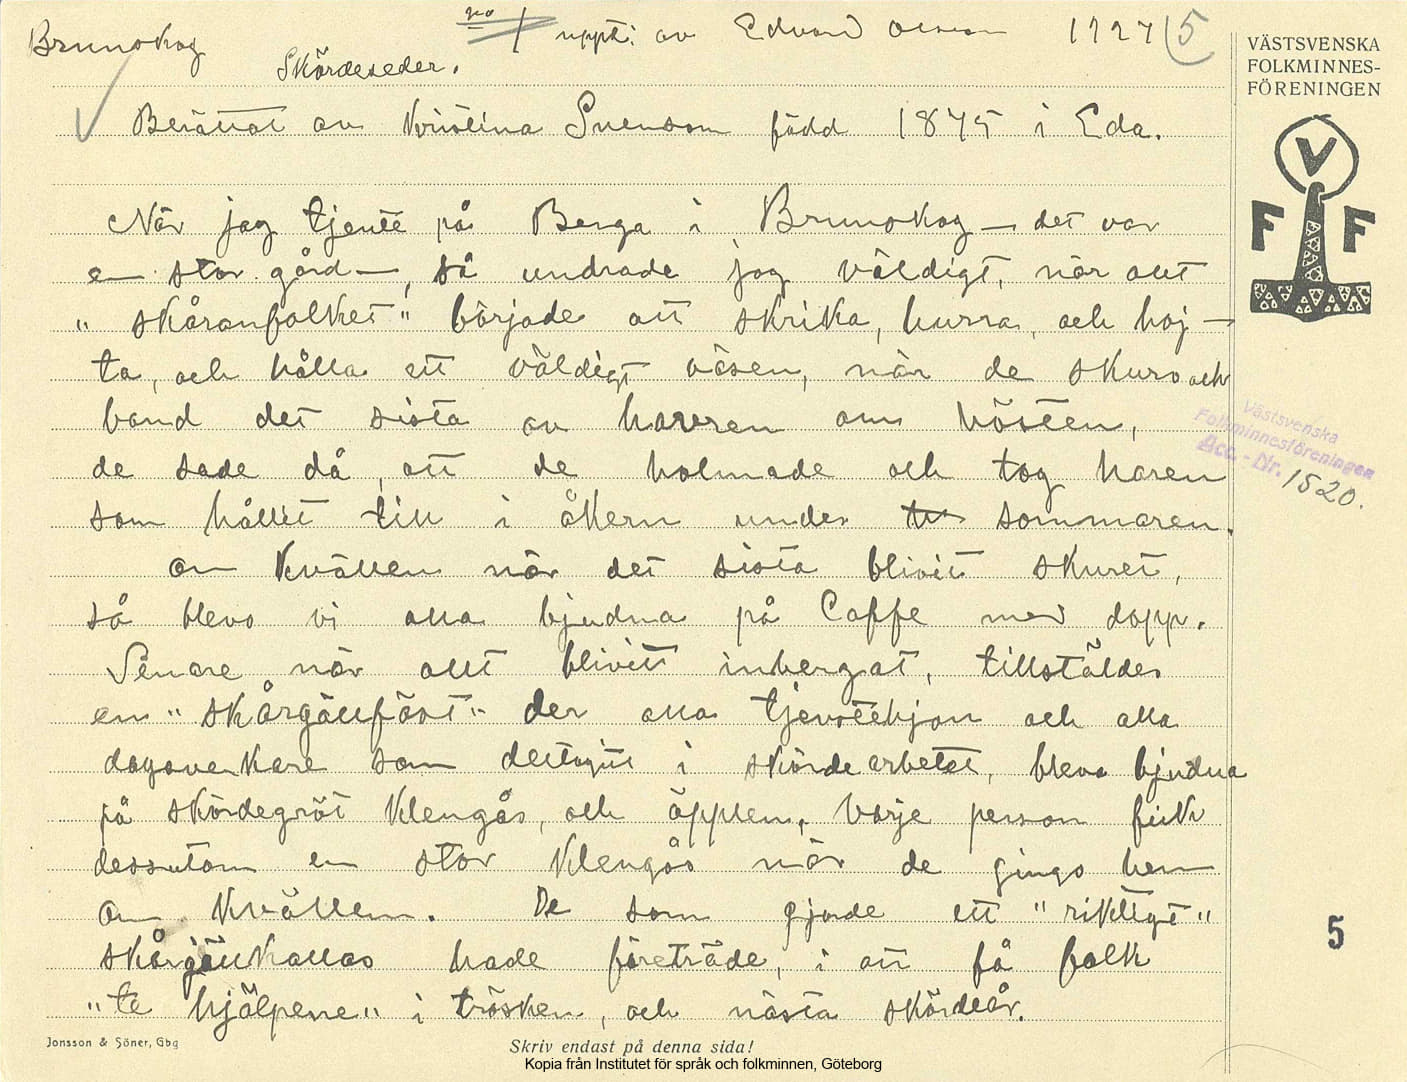 Brunskog
no 1 uppt: av Edvard Olsson 1927 (5
Skördeseder.
Berättat av Kristina Svensson född 1875 i Eda.
När jag tjente på Berga i Brunskog — det var
en stor gård —, så undrade jag väldigt, när allt
"skåranfolket" började att skrika, hurra, och hoj-
ta, och hålla ett väldigt väsen, när de skuro och
band det sista av havren om hösten,
de sade då, att de holmade och tog haren
som hållit till i åkern under sommaren.
Om kvällen när det sista blivit skuret,
så blevo vi alla bjudna på Caffe med dopp.
Senare när allt blivitt inbergat, tillställdes
en "skårgällfäst" der alla tjenstehjon och alla
dagsverkare som deltagit i skördearbetet, blevo bjudna
på skördegröt klengås, och äpplen, varje person fick
dessutom en stor klengås när de gingo hem
om kvällen. De som gjorde ett "riktigt"
skårgällkallas hade företräde, i att få folk
"te hjälpene" i trösken, och nästa skördeår.
VÄSTSVENSKA
FOLKMINNES-
FÖRENINGEN
V
F F
Västsvenska
Folkminnesföreningen
Acc.-Nr. 1520.
5
Jonsson & Söner, Gbg
Skriv endast på denna sida!
Kopia från Institutet för språk och folkminnen, Göteborg